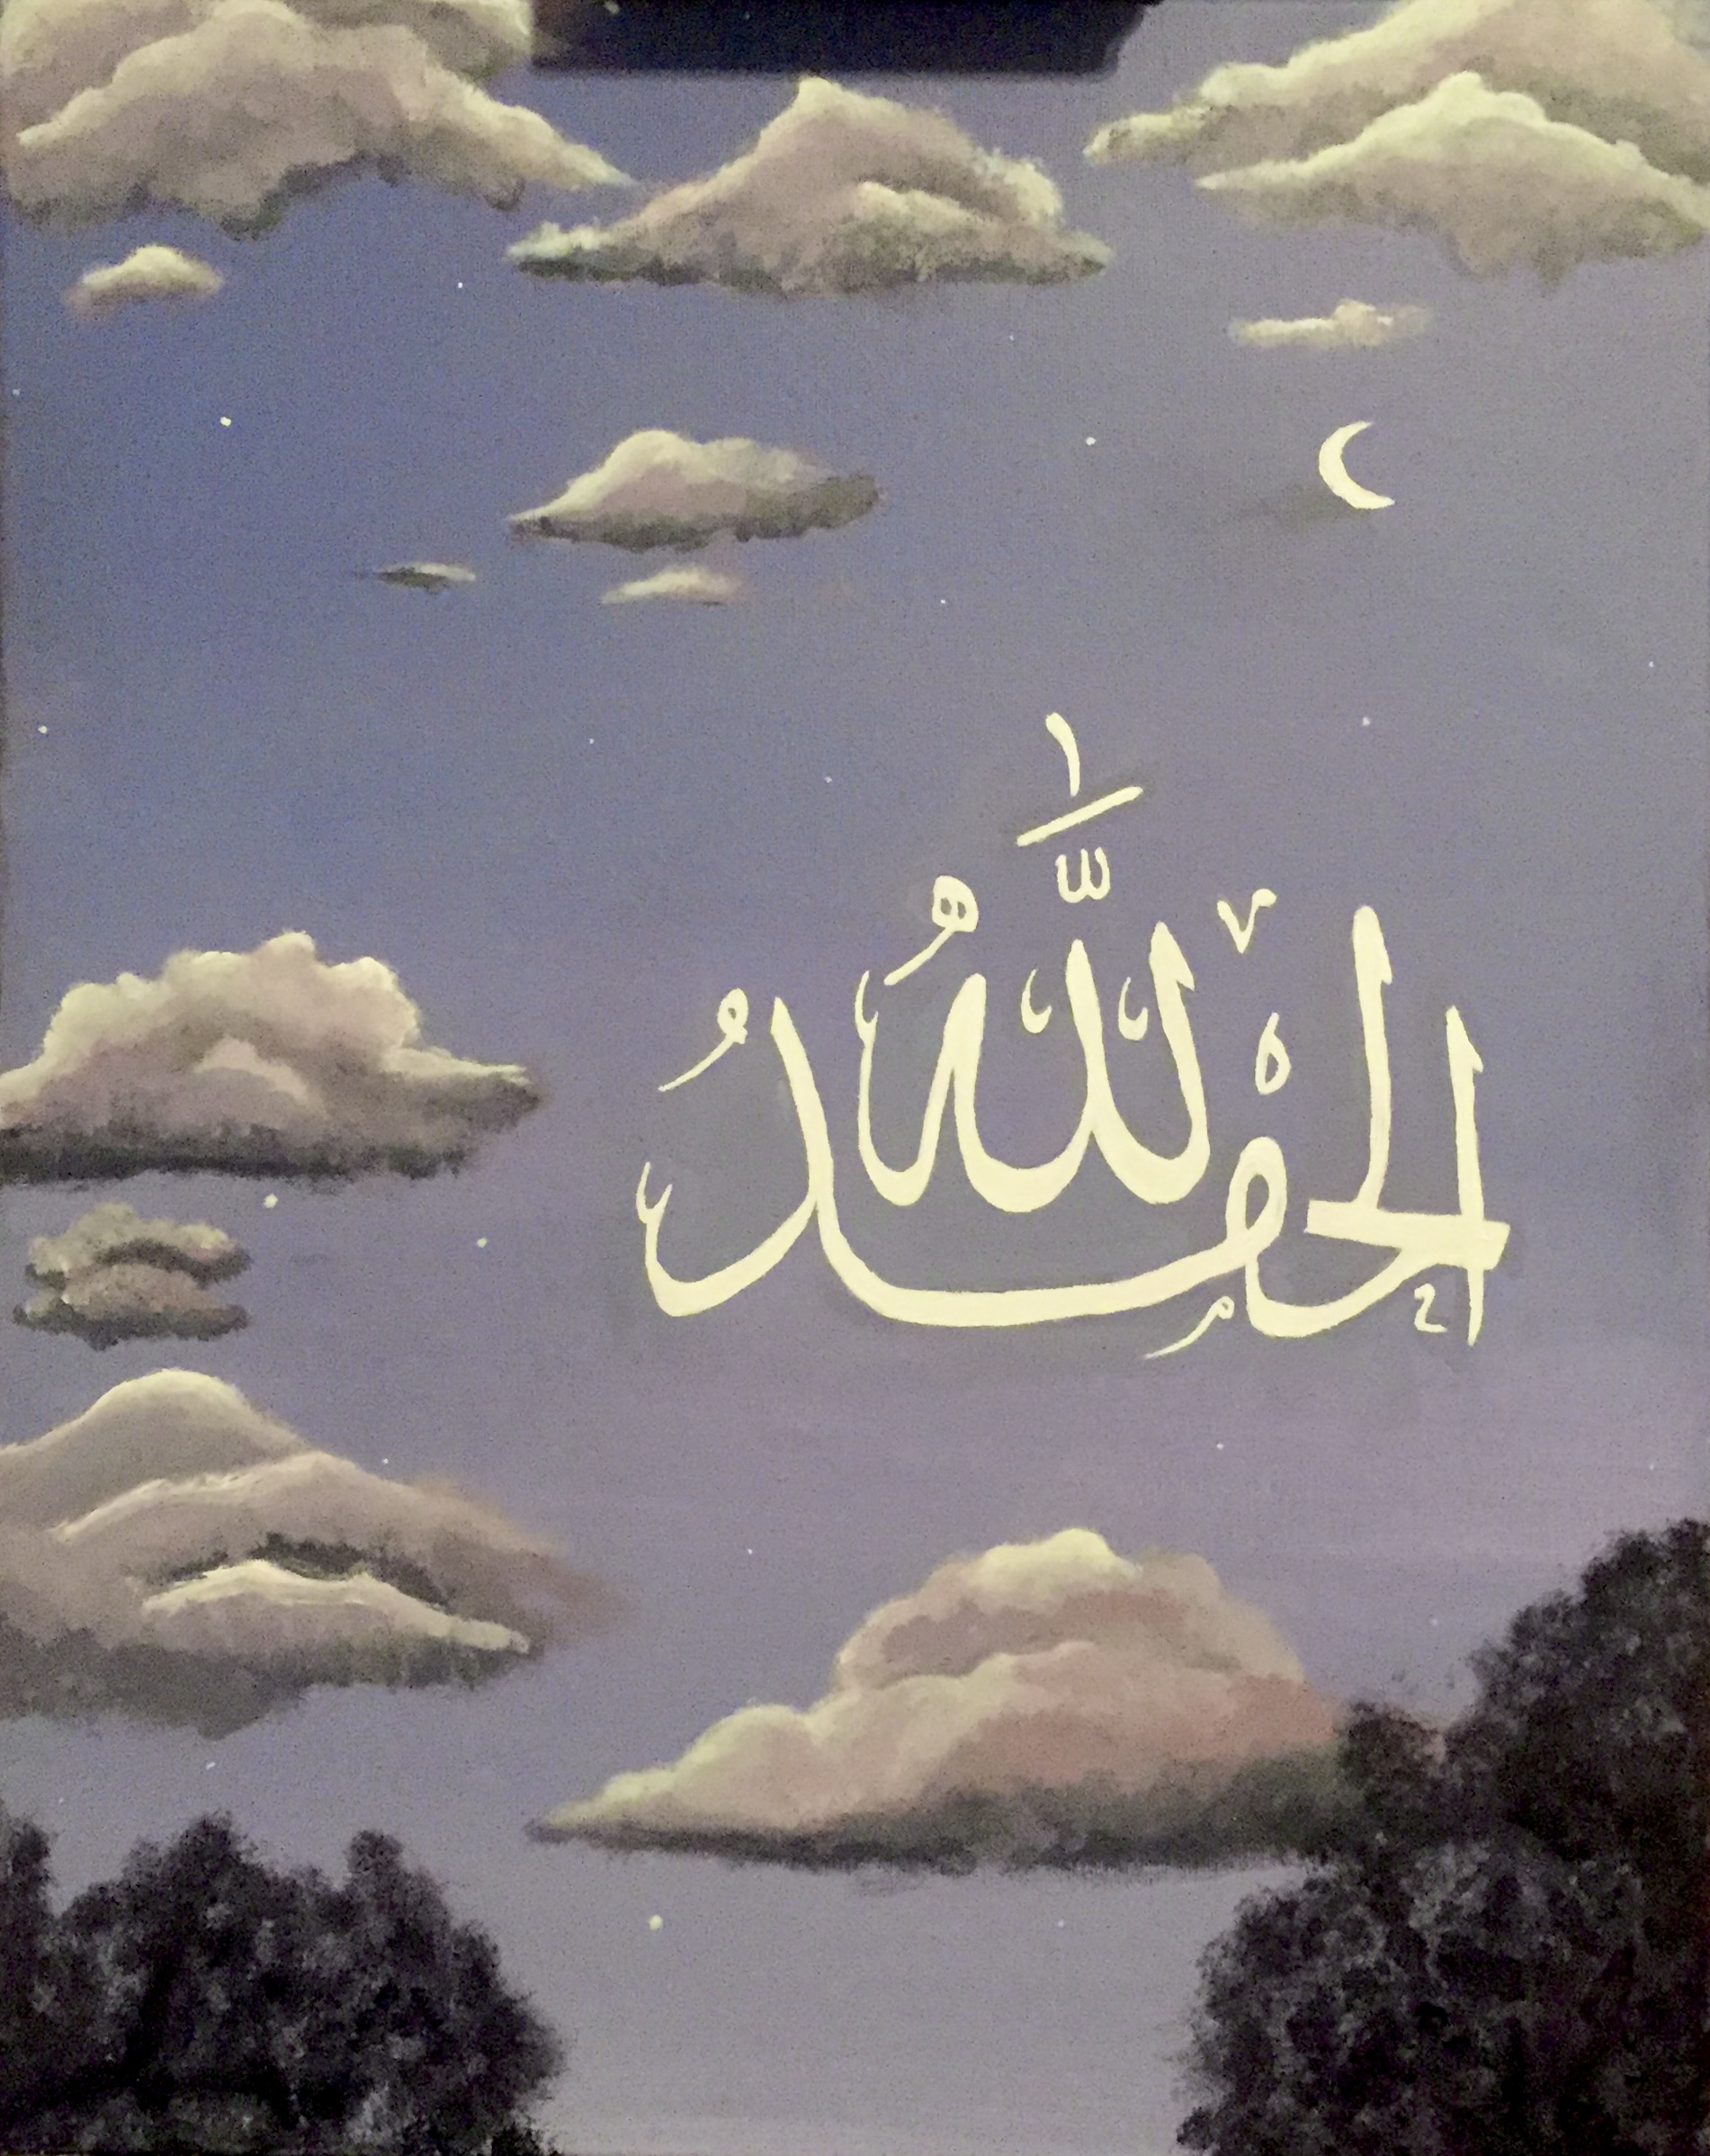 الحمدُ للّٰهُ